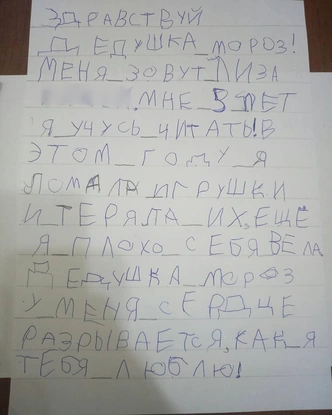 ЗДРАВСТВУЙ
ДЕДУШКА_МОРОЗ!
МЕНЯ_ЗОВУТ_ЛИЗА
.МНЕ_5_ЛЕТ
Я_УЧУСЬ_ЧИТАТЬ!В
ЭТОМ_ГОДУ_Я
ЛОМАЛА_ИГРУШКИ
И_ТЕРЯЛА_ИХ,ЕЩЁ
Я_ПЛОХО_СЕБЯ ВЕЛА
ДЕДУШКА_МОРОЗ
У_МЕНЯ_СЕРДЦЕ
РАЗРЫВАЕТСЯ,КАК_Я
ТЕБЯ_ЛЮБЛЮ!